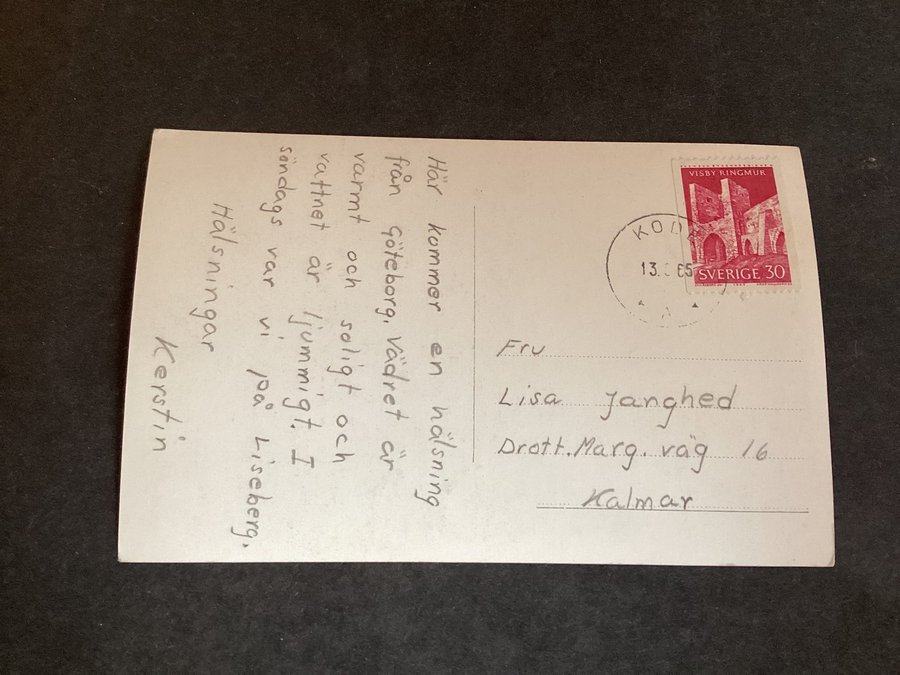 Här kommer en hälsning
från Göteborg. Vädret är
varmt och soligt och
vattnet är ljummigt. I
söndags var vi på Liseberg.
Hälsningar
Kerstin
VISBY RINGMUR
SVERIGE 30
13. 65
Fru
Lisa Janghed
Drott. Marg. väg 16
Kalmar